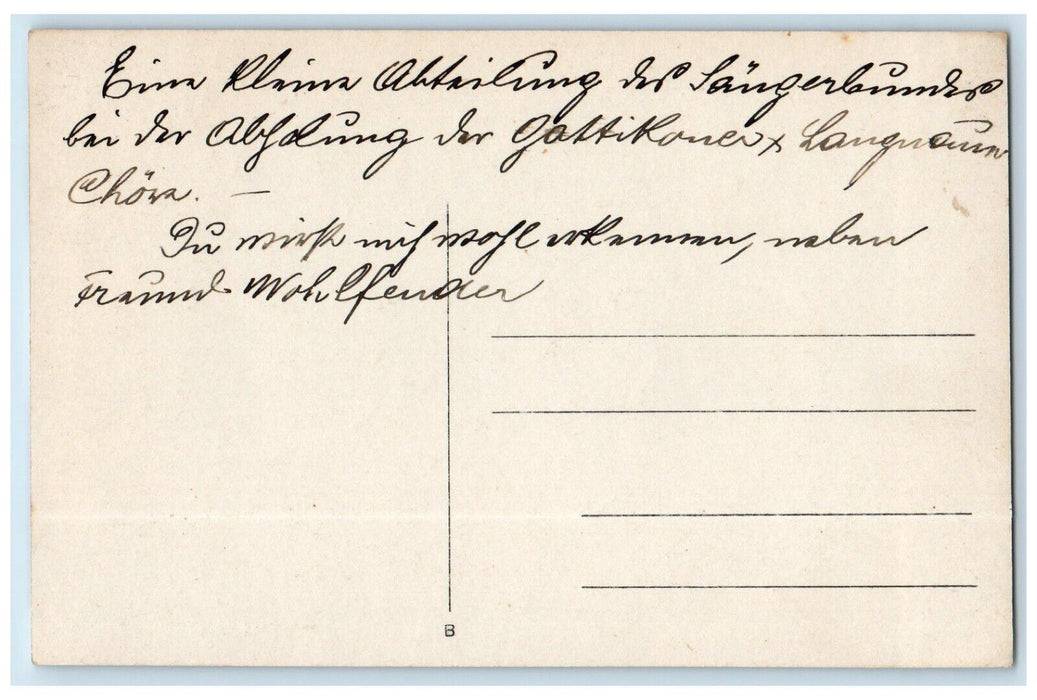 Eine kleine Abteilung des Sängerbundes
bei der Abholung der Gattikoner & Langnauer
Chöre. —
Du wirst mich wohl erkennen, neben
Freund Wohlfender
B